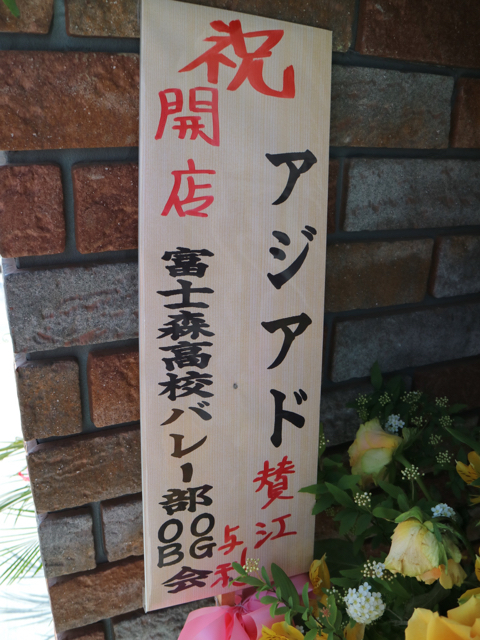 祝
開店
アジアド
賛江
富士森高校バレー部OB OG会
与利